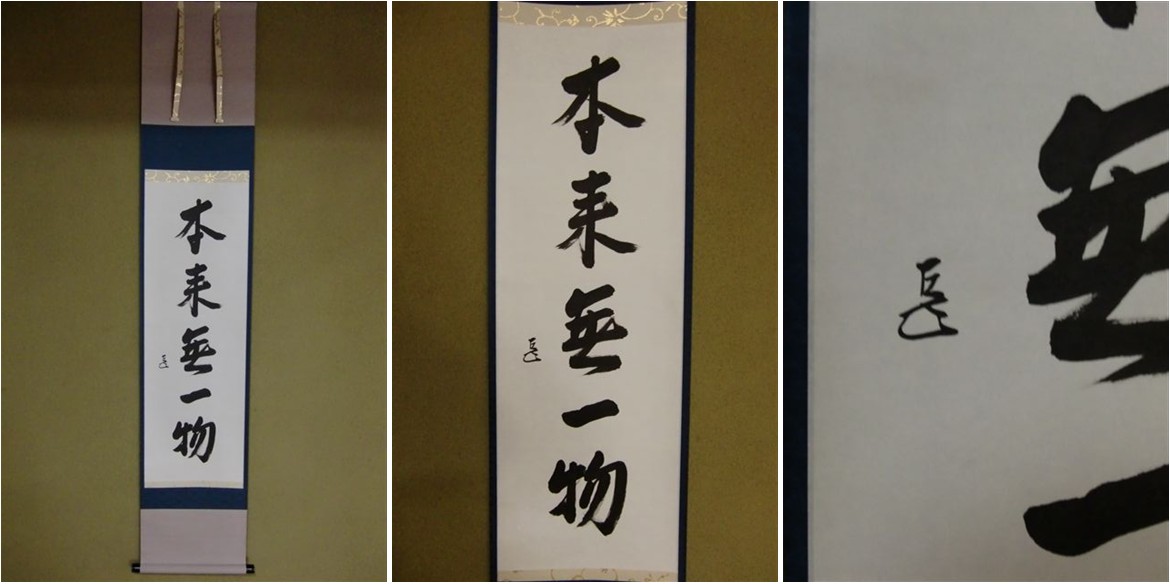 本来無一物
本来無一物
無一